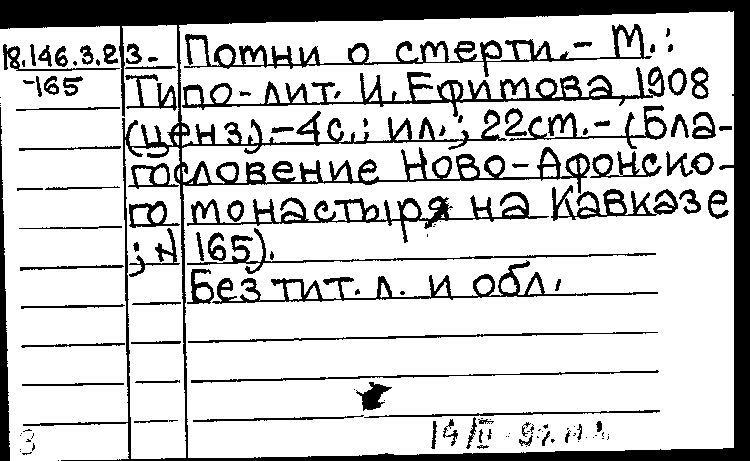 18.146.3.23- Потни о смерти.- М.:
-165 Типо-лит. И. Ефимова, 1908
(ценз.).-4с.: ил.; 22cm.-(Бла-
гословение Ново-Афонско-
го монастыря на Кавказе
; N 165).
Без тит. л. и обл.
3